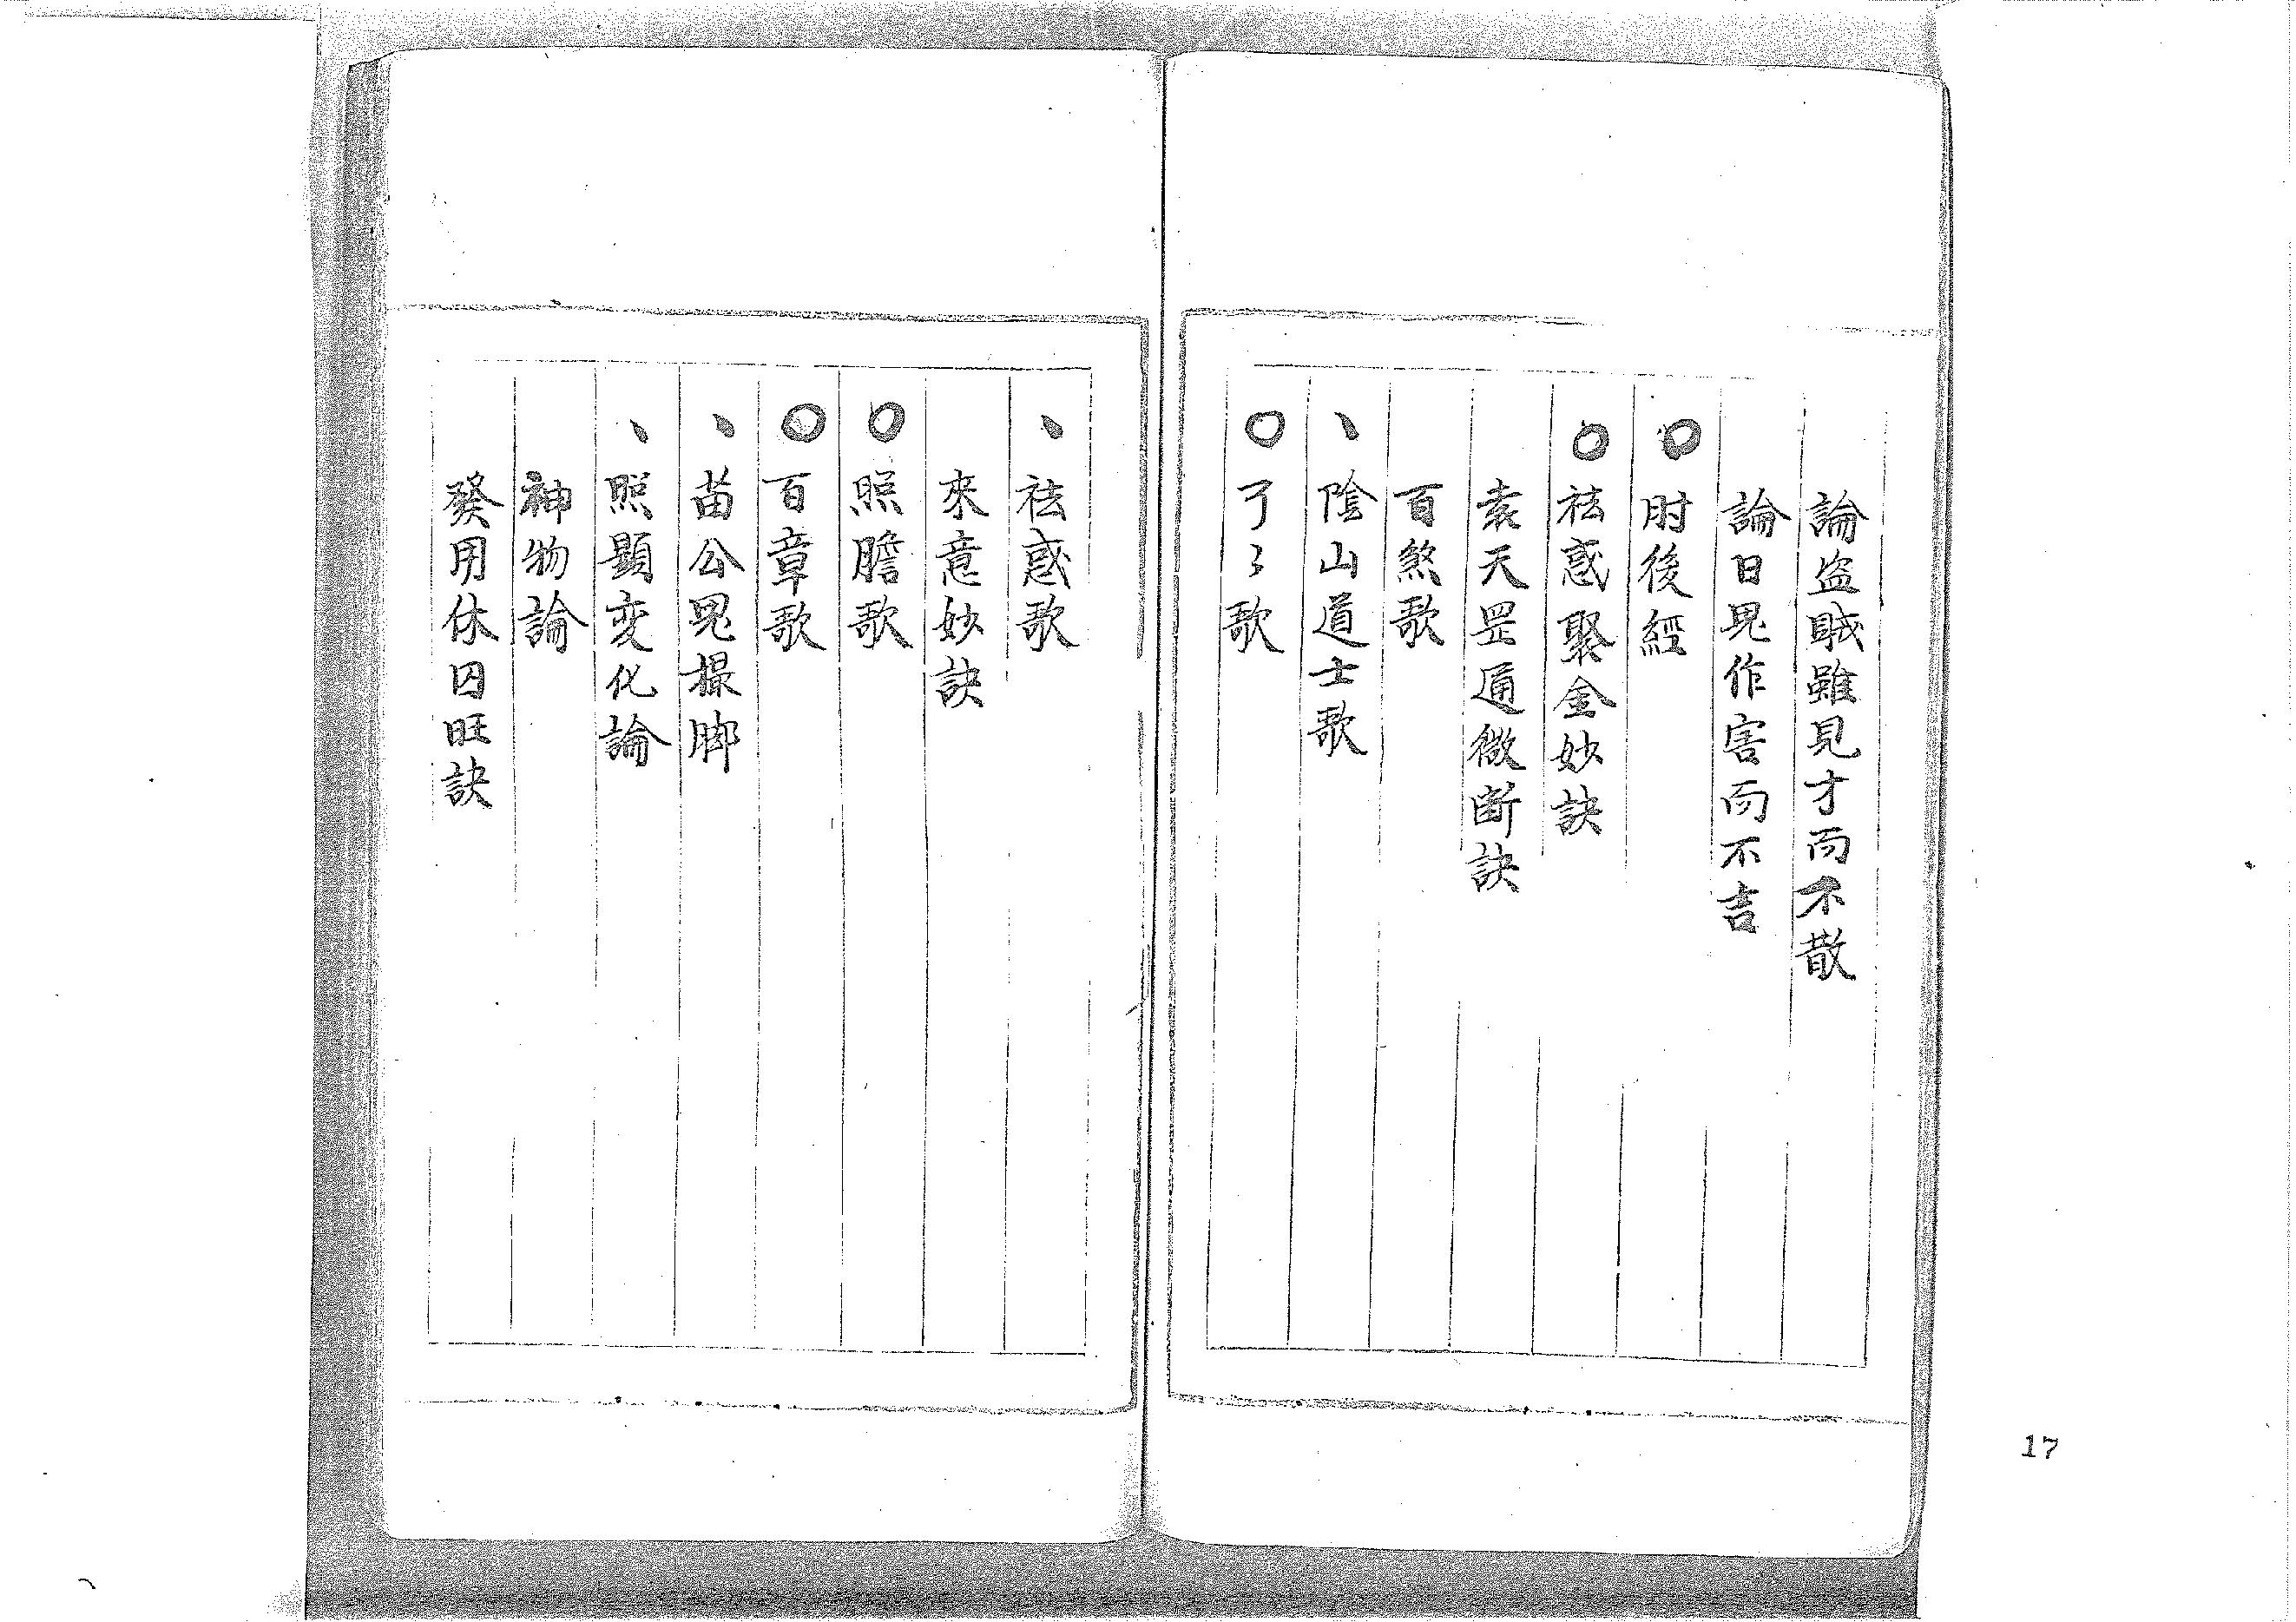 論盗賊雖見才而不散
論日鬼作害而不吉
〇肘後經
〇祛惑聚金妙訣
袁天罡通微断訣
百煞歌
、陰山道士歌
〇了〻歌
、祛惑歌
來意妙訣
〇照膽歌
〇百章歌
、苗公鬼撮脚
、照顕变化論
神物論
癸用休囚旺訣
17